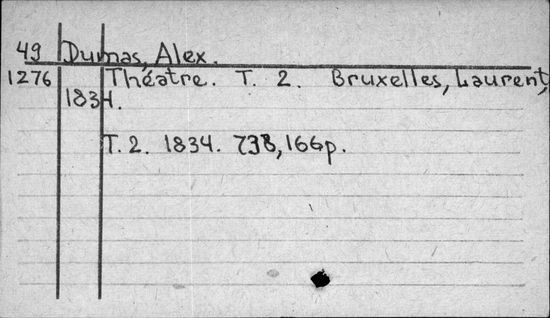 49 Dumas, Alex.
1276 Théatre. T. 2. Bruxelles, Laurent,
1834.
T. 2. 1834. 738, 166p.